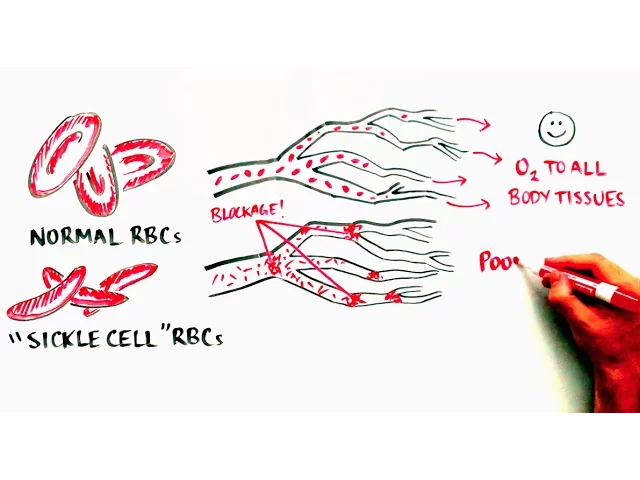 O₂ TO ALL
BODY TISSUES
BLOCKAGE!
NORMAL RBCs
Poo
"SICKLE CELL" RBCs